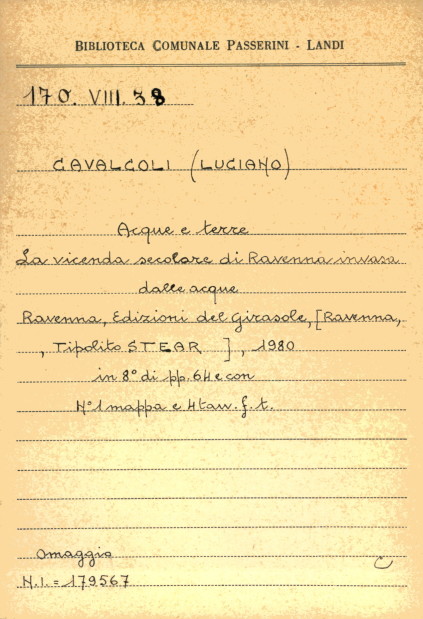 BIBLIOTECA COMUNALE PASSERINI - LANDI
170. VIII. 38
CAVALCOLI (LUCIANO)
Acque e terre
La vicenda secolare di Ravenna invasa
dalle acque
Ravenna, Edizioni del Girasole, [Ravenna,
, Tipolito STEAR ], 1980
in 8° di pp. 64 e con
N° 1 mappa e 4 tav. f. t.
Omaggio
C
N.I. = 179567